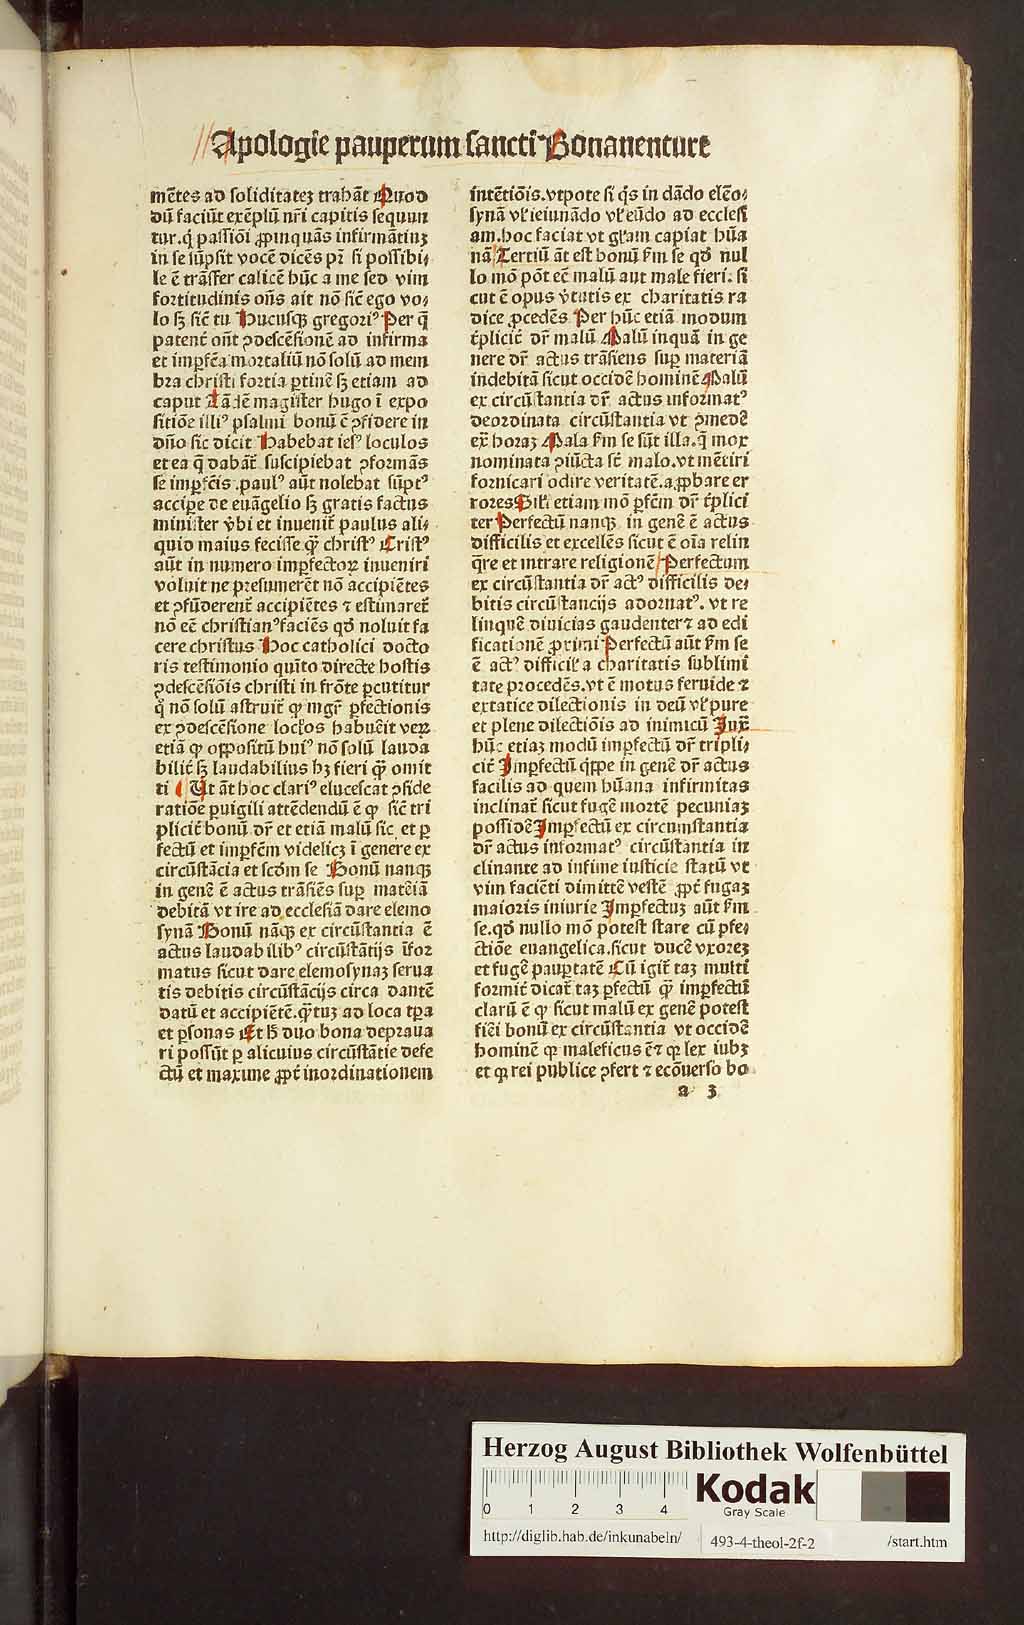 Apologie pauperum sancti Bonauenture
mētes ad soliditatez trahāt Quod
dū faciūt exēplū nr̄i capitis sequun
tur.q̄ passiōi ꝓpinquās infirmātiuz
in se sūpsit vocē dicēs pr̄ si possibi⸗
le ē trāsfer calicē hūc a me sed vim
fortitudinis oñs ait nō sic̄ ego vo⸗
lo sꝫ sic̄ tu Hucusqꝫ gregoriꝰ Per q̄
patent̄ oñt ꝯdescēsionē ad infirma
et imꝑfc̄a mortaliū nō solū ad mem
bra christi fortia ꝑtinē sꝫ etiam ad
caput magister hugo ī expo
sitiōe illiꝰ psalmi bonū ē ꝯfidere in
dño sic dicit Habebat iesꝰ loculos
et ea q̄ dabāt̄ suscipiebat ꝯformās
se imꝑfc̄is.paulꝰ aūt nolebat sūptꝰ
accipe de euāgelio sꝫ gratis factus
minister v̄bi et inuenit̄ paulus ali⸗
quid maius fecisse q̄ꝫ christꝰ Cristꝰ
aūt in numero imꝑfectoꝝ inueniri
voluit ne presumerēt nō accipiētes
et ꝯfūderent̄ accipiētes ⁊ estimaret̄
nō eē christianꝰ faciēs qd̄ noluit fa
cere christus Hoc catholici docto
ris testimonio quīto directe hostis
ꝯdescēsiōis christi in frōte ꝑcutitur
q̇ nō solū astruit̄ ꝙ mgr̄ ꝑfectionis
ex ꝯdescēsione locl̄os habuēit veꝝ
etiā ꝙ oppositū huiꝰ nō solū lauda
bilit̄ sꝫ laudabilius hꝫ fieri q̄ꝫ omit
ti Ut āt hoc clariꝰ elucescat ꝯside
ratiōe ꝑuigili attēdendū ē ꝙ sic̄ tri
plicit̄ bonū dr̄ et etiā malū sic et ꝑ
fectū et imꝑfcm̄ videlicꝫ ī genere ex
circūstācia et scdm̄ se Bonū nanqꝫ
in genē ē actus trāsiēs suꝑ matēiā
debitā vt ire ad ecclesiā dare elemo
synā Bonū nāqꝫ ex circūstantia ē
actus laudabilibꝰ circūstātijs īfor
matus sicut dare elemosynaꝫ serua
tis debitis circūstācijs circa dantē
datū et accipiētē.q̄tuꝫ ad loca tꝑa
et ꝑsonas Et h̄ duo bona deprauа
ri possūt ꝑ alicuius circūstātie defe
ctū et maxime ꝓpt̄ inordinationem
intētiōis.vtpote si q̇s in dādo elēo⸗
synā vl̓ ieiunādo vl̓ eūdo ad ecclesi
am.hoc faciat vt gl̓iam capiat hūa
nā Tertiū āt est bonū fm̄ se qd̄ nul
lo mō pōt eē malū aut male fieri: si
cut ē opus v̓tutis ex charitatis ra
dice ꝓcedēs Per hūc etiā modum
t̓plicit̄ dr̄ malū Malū inquā in ge
nere dr̄ actus trāsiens suꝑ materiā
indebitā sicut occidē hominē Malū
ex circūstantia dr̄ actus informatꝰ
deordinata circūstantia vt ꝯmedē
ex̄ horaꝫ Mala fm̄ se sūt illa.q̄ mox
nominata ꝯiūcta st̄ malo.vt mētiri
fornicari odire veritatē.aꝓbare er
rores Sil̓i etiam mō ꝑfcm̄ dr̄ t̓plici
ter Perfectū nanqꝫ in genē ē actus
difficilis et excellēs sicut ē oīa relin
q̄re et intrare religionē Perfectum
ex circūstantia dr̄ actꝰ difficilis de⸗
bitis circūstancijs adornatꝰ. vt re
linquē diuicias gaudenter ⁊ ad edi
ficationē ꝓximi Perfectū aūt fm̄ se
ē actꝰ difficil̓ a charitatis sublimi
tate procedēs.vt ē motus feruide ⁊
extatice dilectionis in deū vl̓ pure
et plene dilectiōis ad inimicū Jux̄
hūc etiaꝫ modū imꝑfectū dr̄ tripli⸗
cit̄ Imꝑfectū q̇ppe in genē dr̄ actus
facilis ad quem hūana infirmitas
inclinat̄ sicut fugē mortē pecuniaꝫ
possidē Imꝑfectū ex circumstantia
dr̄ actus informatꝰ circūstantia in
clinante ad infime iusticie statū vt
vim faciēti dimittē vestē ꝓpt̄ fugaꝫ
maioris iniurie Imꝑfectuꝫ aūt fm̄
se.qd̄ nullo mō potest stare cū ꝑfe⸗
ctiōe euangelica.sicut ducē vxoreꝫ
et fugē pauꝑtatē Cū igit̄ taꝫ multi
formit̄ dicat̄ taꝫ ꝑfectū q̄ꝫ imꝑfectū
clarū ē ꝙ sicut malū ex genē potest
fiēi bonū ex circūstantia vt occidē
hominē ꝙ maleficus ē ⁊ ꝙ lex iubꝫ
et ꝙ rei publice ꝯfert ⁊ ecōuerso bo
a 3
Herzog August Bibliothek Wolfenbüttel
0 1 2 3 4
Kodak
Gray Scale
http://diglib.hab.de/inkunabeln/ 493-4-theol-2f-2 /start.htm